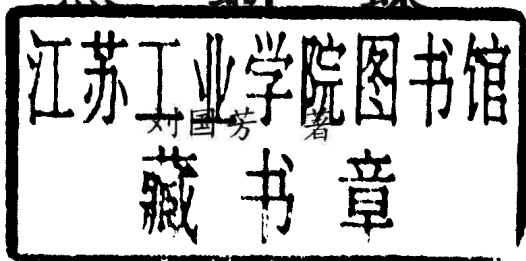 江苏工业学院图书馆
刘国芳 著
藏书章